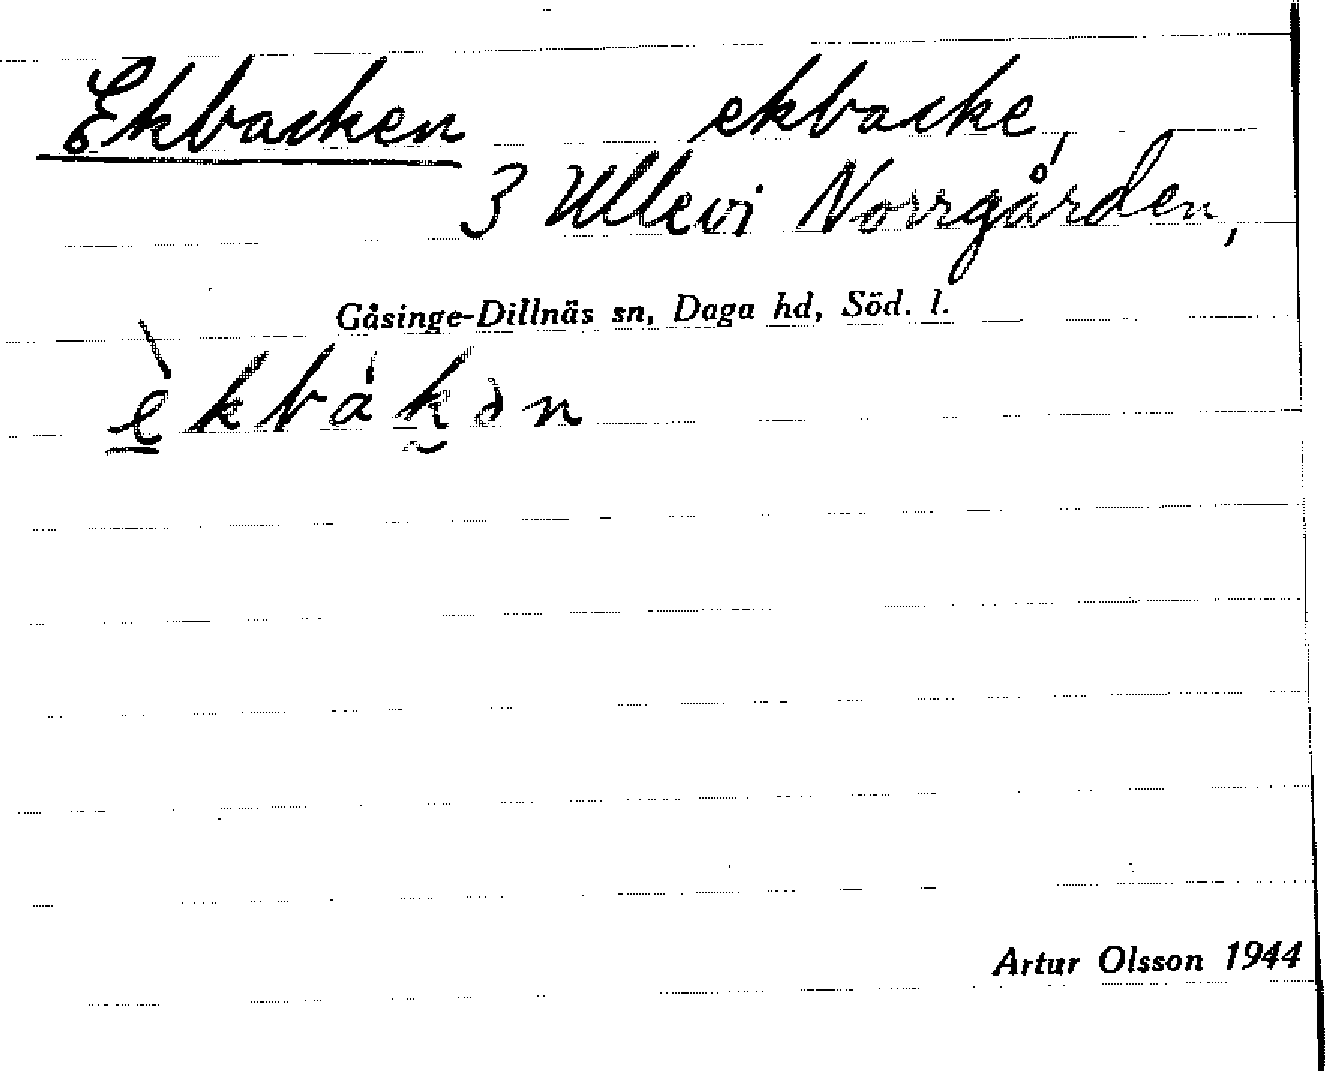 Ekbacken ekbacke,
3 Ullevi Norrgården,
Gåsinge-Dillnäs sn, Daga hd, Söd. l.
è̲kbàk̰ən
Artur Olsson 1944